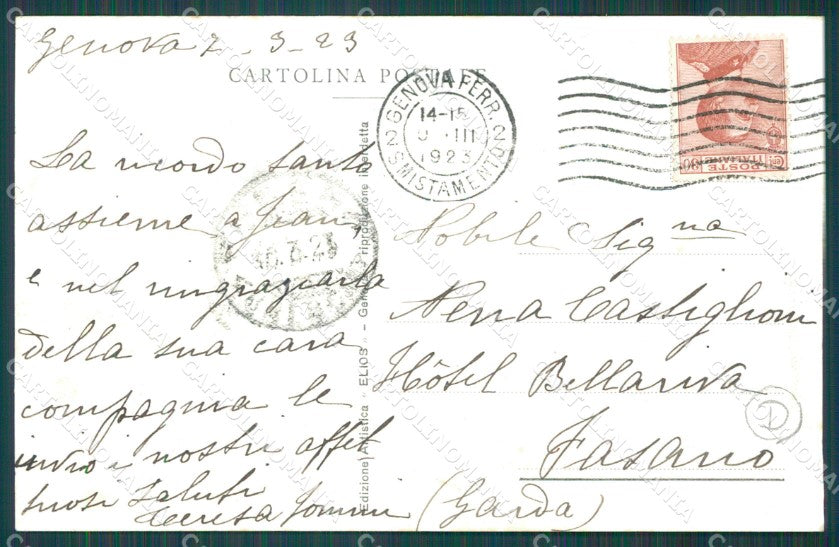 Genova 7-3-23
CARTOLINA POSTALE
GENOVA FERR.
14-15
III
1923
SMISTAMENTO
2 2
POSTE
ITALIANE
La ricordo tanto
assieme a Jean,
e nel ringraziarla
della sua cara
compagnia le
invio i nostri affet
tuosi saluti
Teresa
10.3.23
Edizione Artistica "ELIOS" - Genova riproduzione interdetta
Nobile Signa
Nena Castiglioni
Hôtel Bellariva
Fasano
(Garda)
CARTOLINOMANIA